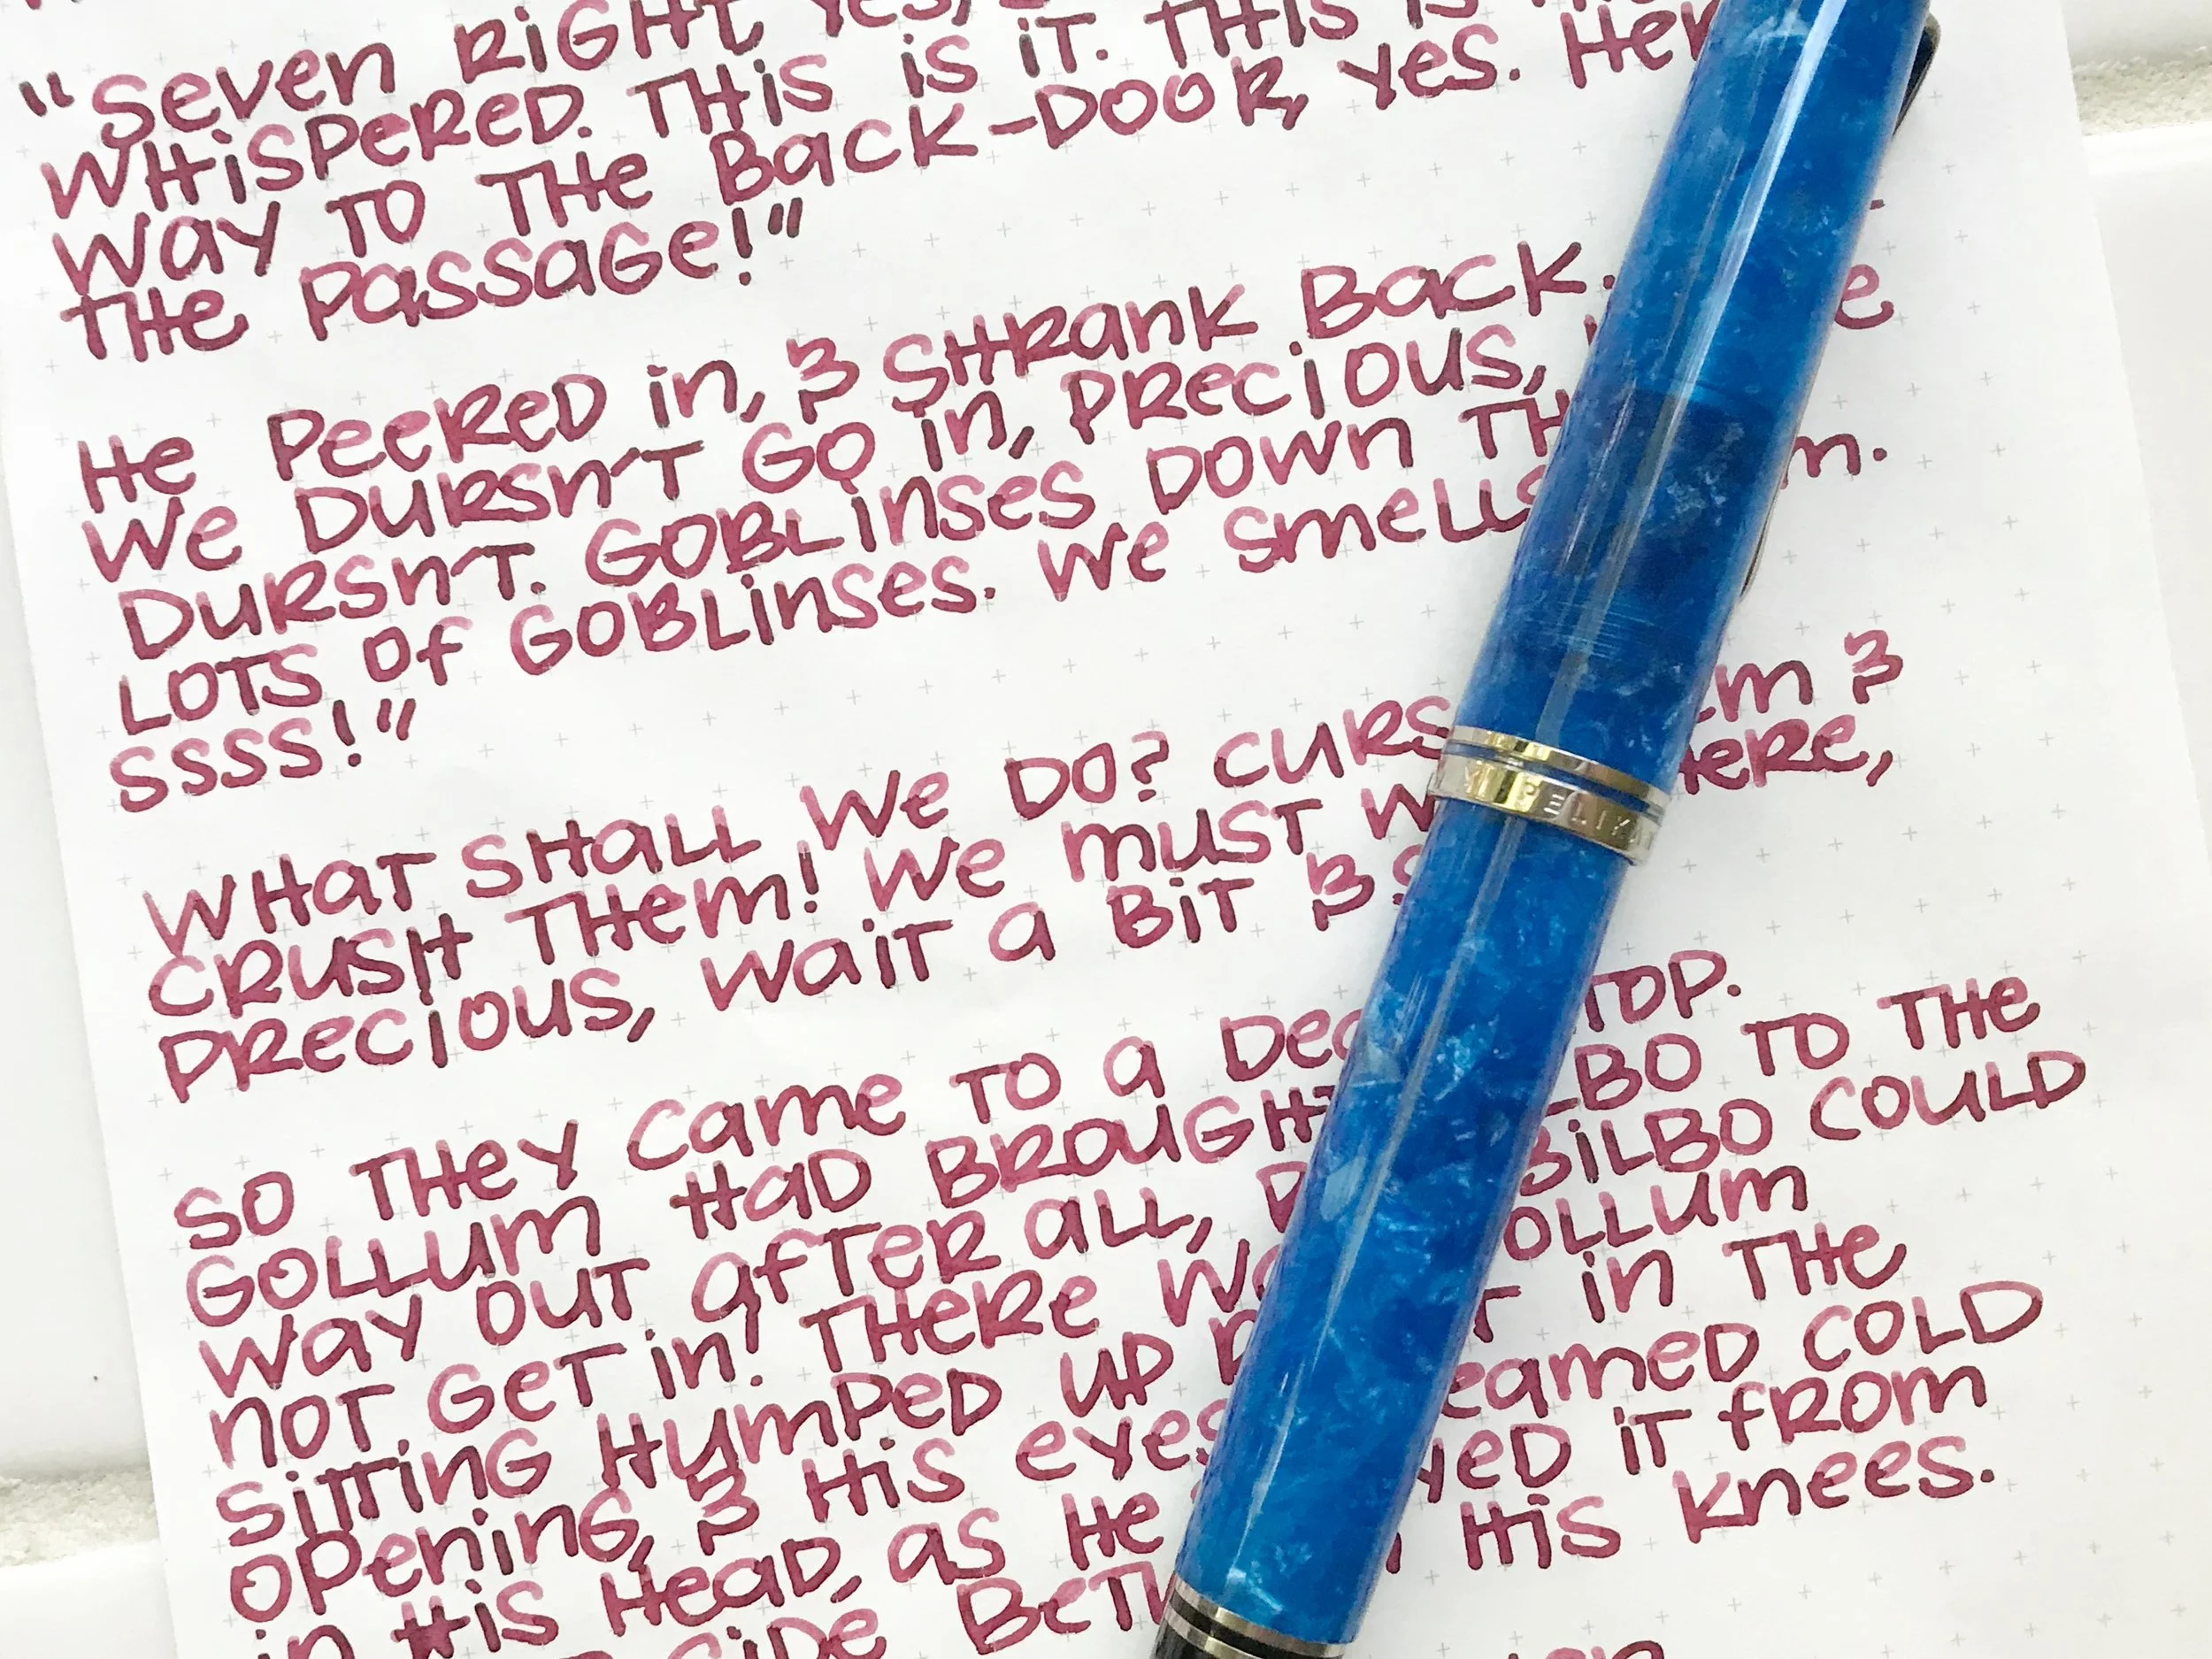 "Seven RiGHT yes,
WHiSPeReD. THiS is iT. THiS is
way TO THe Back-DOOR, yes. Her
THe Passage!"
He PeeReD in, & SHRank Back.
We DuRSn'T GO in, PRecious,
DuRSn'T. GOBLinses DOWn TH m.
LOTS Of GOBLinses. We smells
SSSS!"
WHaT SHaLL We DO? CuRS em &
CRuSH THem! We must W Here,
PRecious, waiT a BiT &
SO THey came TO a Dea TOP.
GOLLum HaD BROuGHT LBO TO THe
way OuT afTeR aLL, BiLBO COuLD
nOT GeT in! THeRe Wa OLLum
SiTTinG HumPeD uP T in THe
OPeninG, & His eyes eameD COLD
in His HeaD, as He yeD iT fROm
SiDe BeTw His knees.